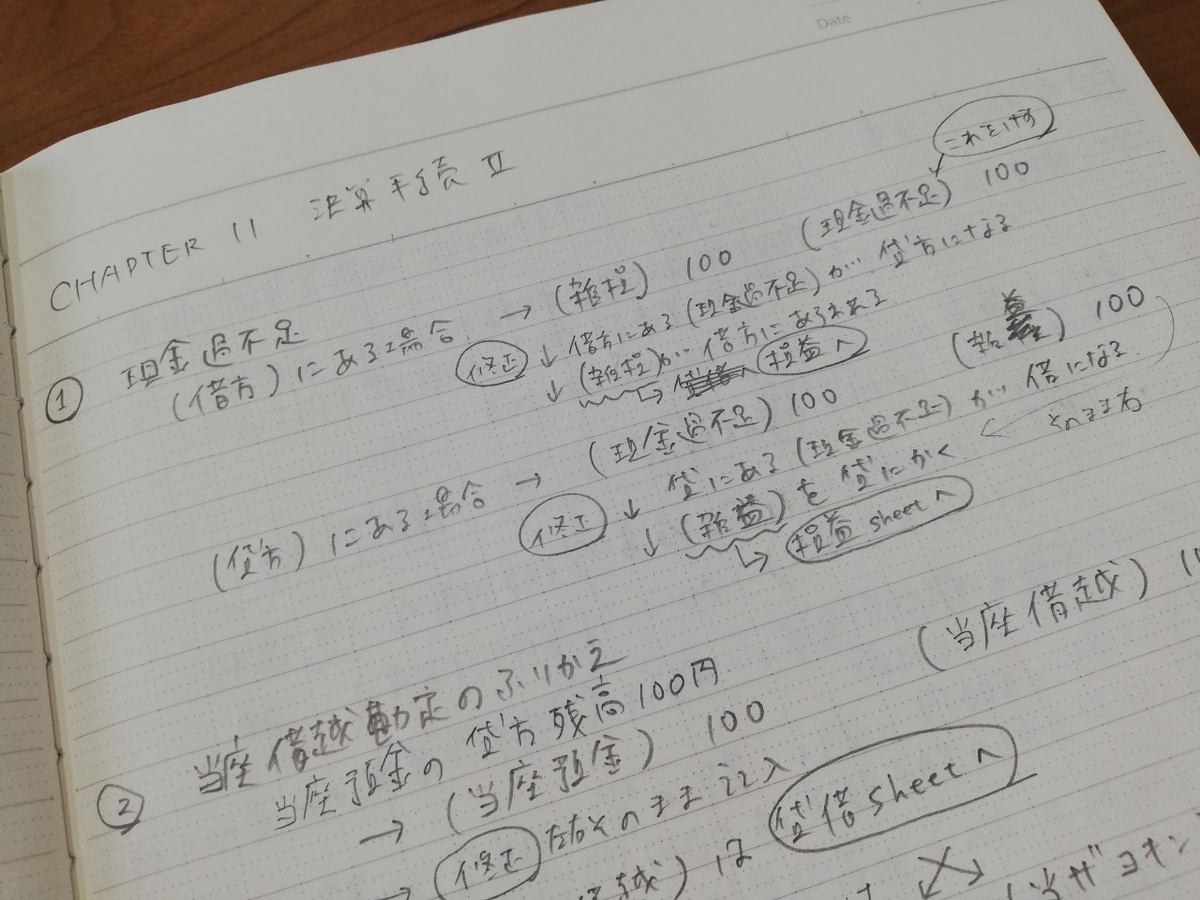 Date
CHAPTER 11 決算手続 II
これをけす
① 現金過不足
(借方)にある場合 → (雑損) 100 (現金過不足) 100
修正 ↓ 借方にある(現金過不足)が… 貸方になる
↓ (雑損)が… 借方にあらわれる
↳ 損益へ
(貸方)にある場合 → (現金過不足) 100 (雑益) 100
修正 ↓ 貸にある(現金過不足)が… 借になる
↓ (雑益)を貸にかく ← そのまま右
↳ 損益 sheet へ
② 当座借越勘定のふりかえ
当座預金の貸方残高100円
→ (当座預金) 100 (当座借越) 1
→ 修正 左右そのまま記入
越)は 貸借 sheet へ